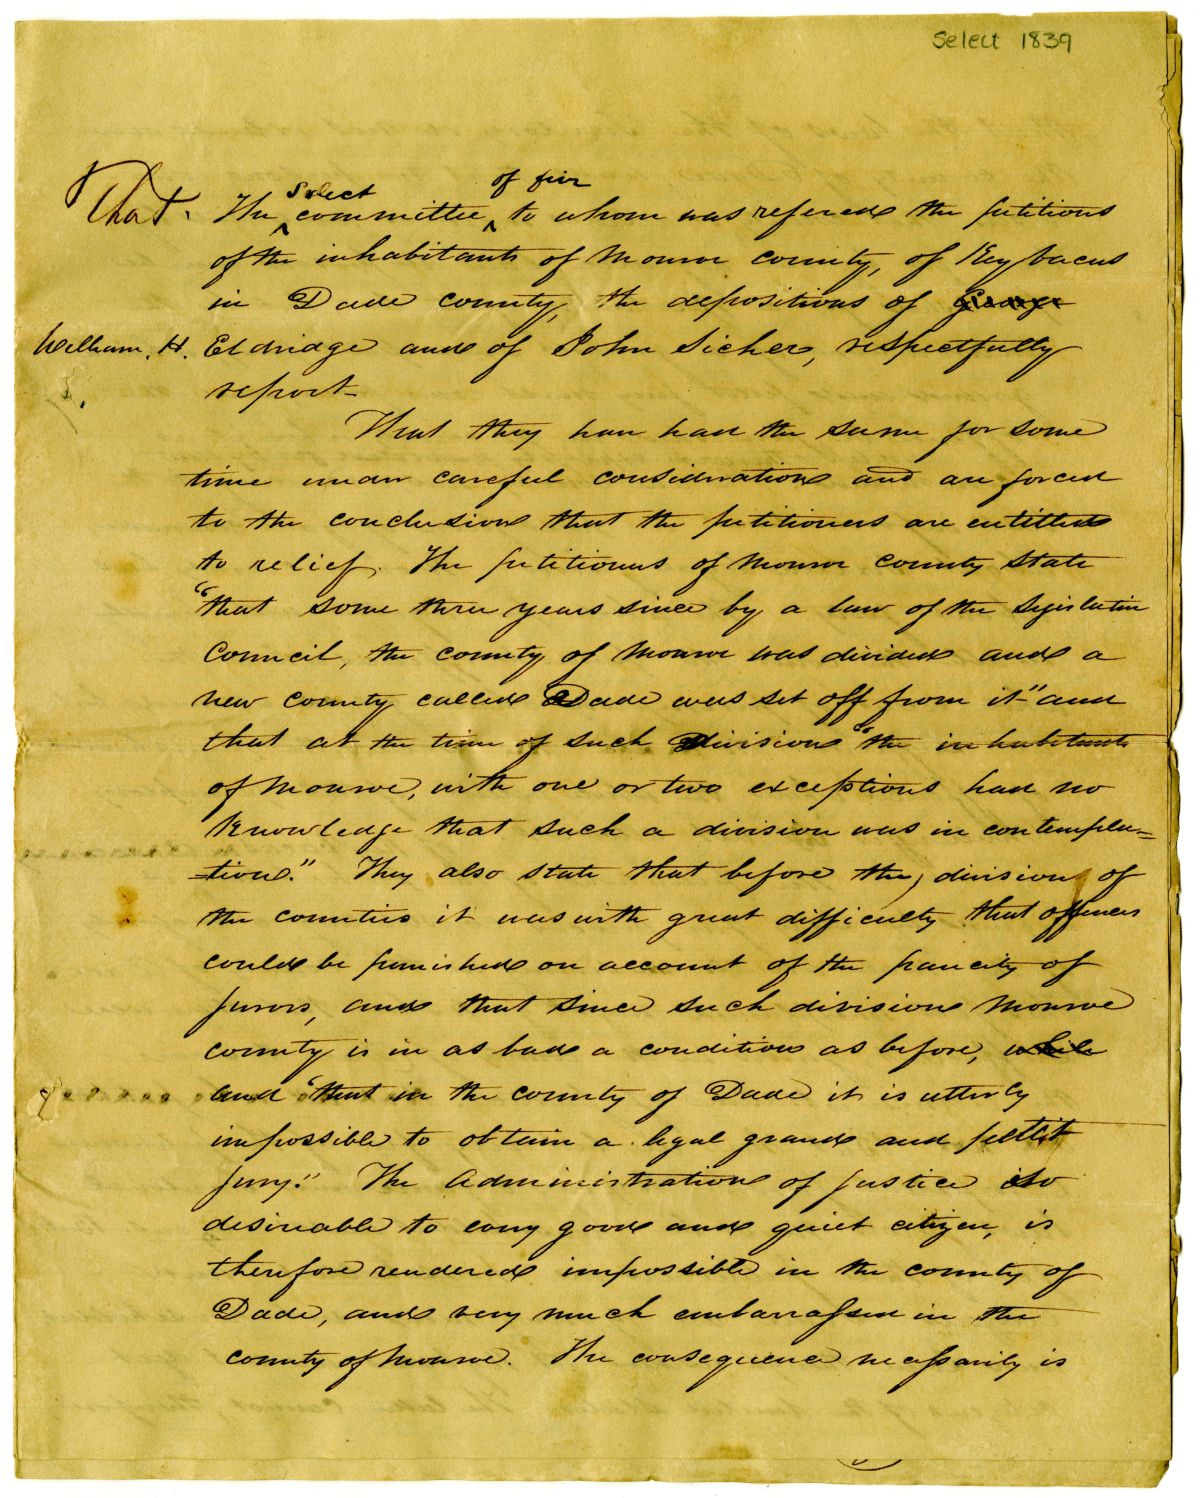 Select 1839
Select of five
That. The committee to whom was refered the petitions
of the inhabitants of Monroe county, of Key bacus
in Dade county, the depositions of George
William. H. Eldridge and of John Sicher, respectfully
report—
That they have had the same for some
time under careful consideration and are forced
to the conclusion that the petitioners are entitled
to relief. The petitioners of Monroe county state
"that some three years since by a law of the Legislative
Council, the county of Monroe was divided and a
new county called Dade was set off from it" and
that at the time of such division "the inhabitants
of Monroe, with one or two exceptions had no
knowledge that such a division was in contempla=
=tion." They also state that before the division of
the counties it was with great difficulty that offences
could be punished on account of the paucity of
jurors, and that since such division Monroe
county is in as bad a condition as before, while
and "that in the county of Dade it is utterly
impossible to obtain a legal grand and pettit
jury." The administration of justice so
desireable to every good and quiet citizen, is
therefore rendered impossible in the county of
Dade, and very much embarrassed in the
county of Monroe. The consequence necessarily is